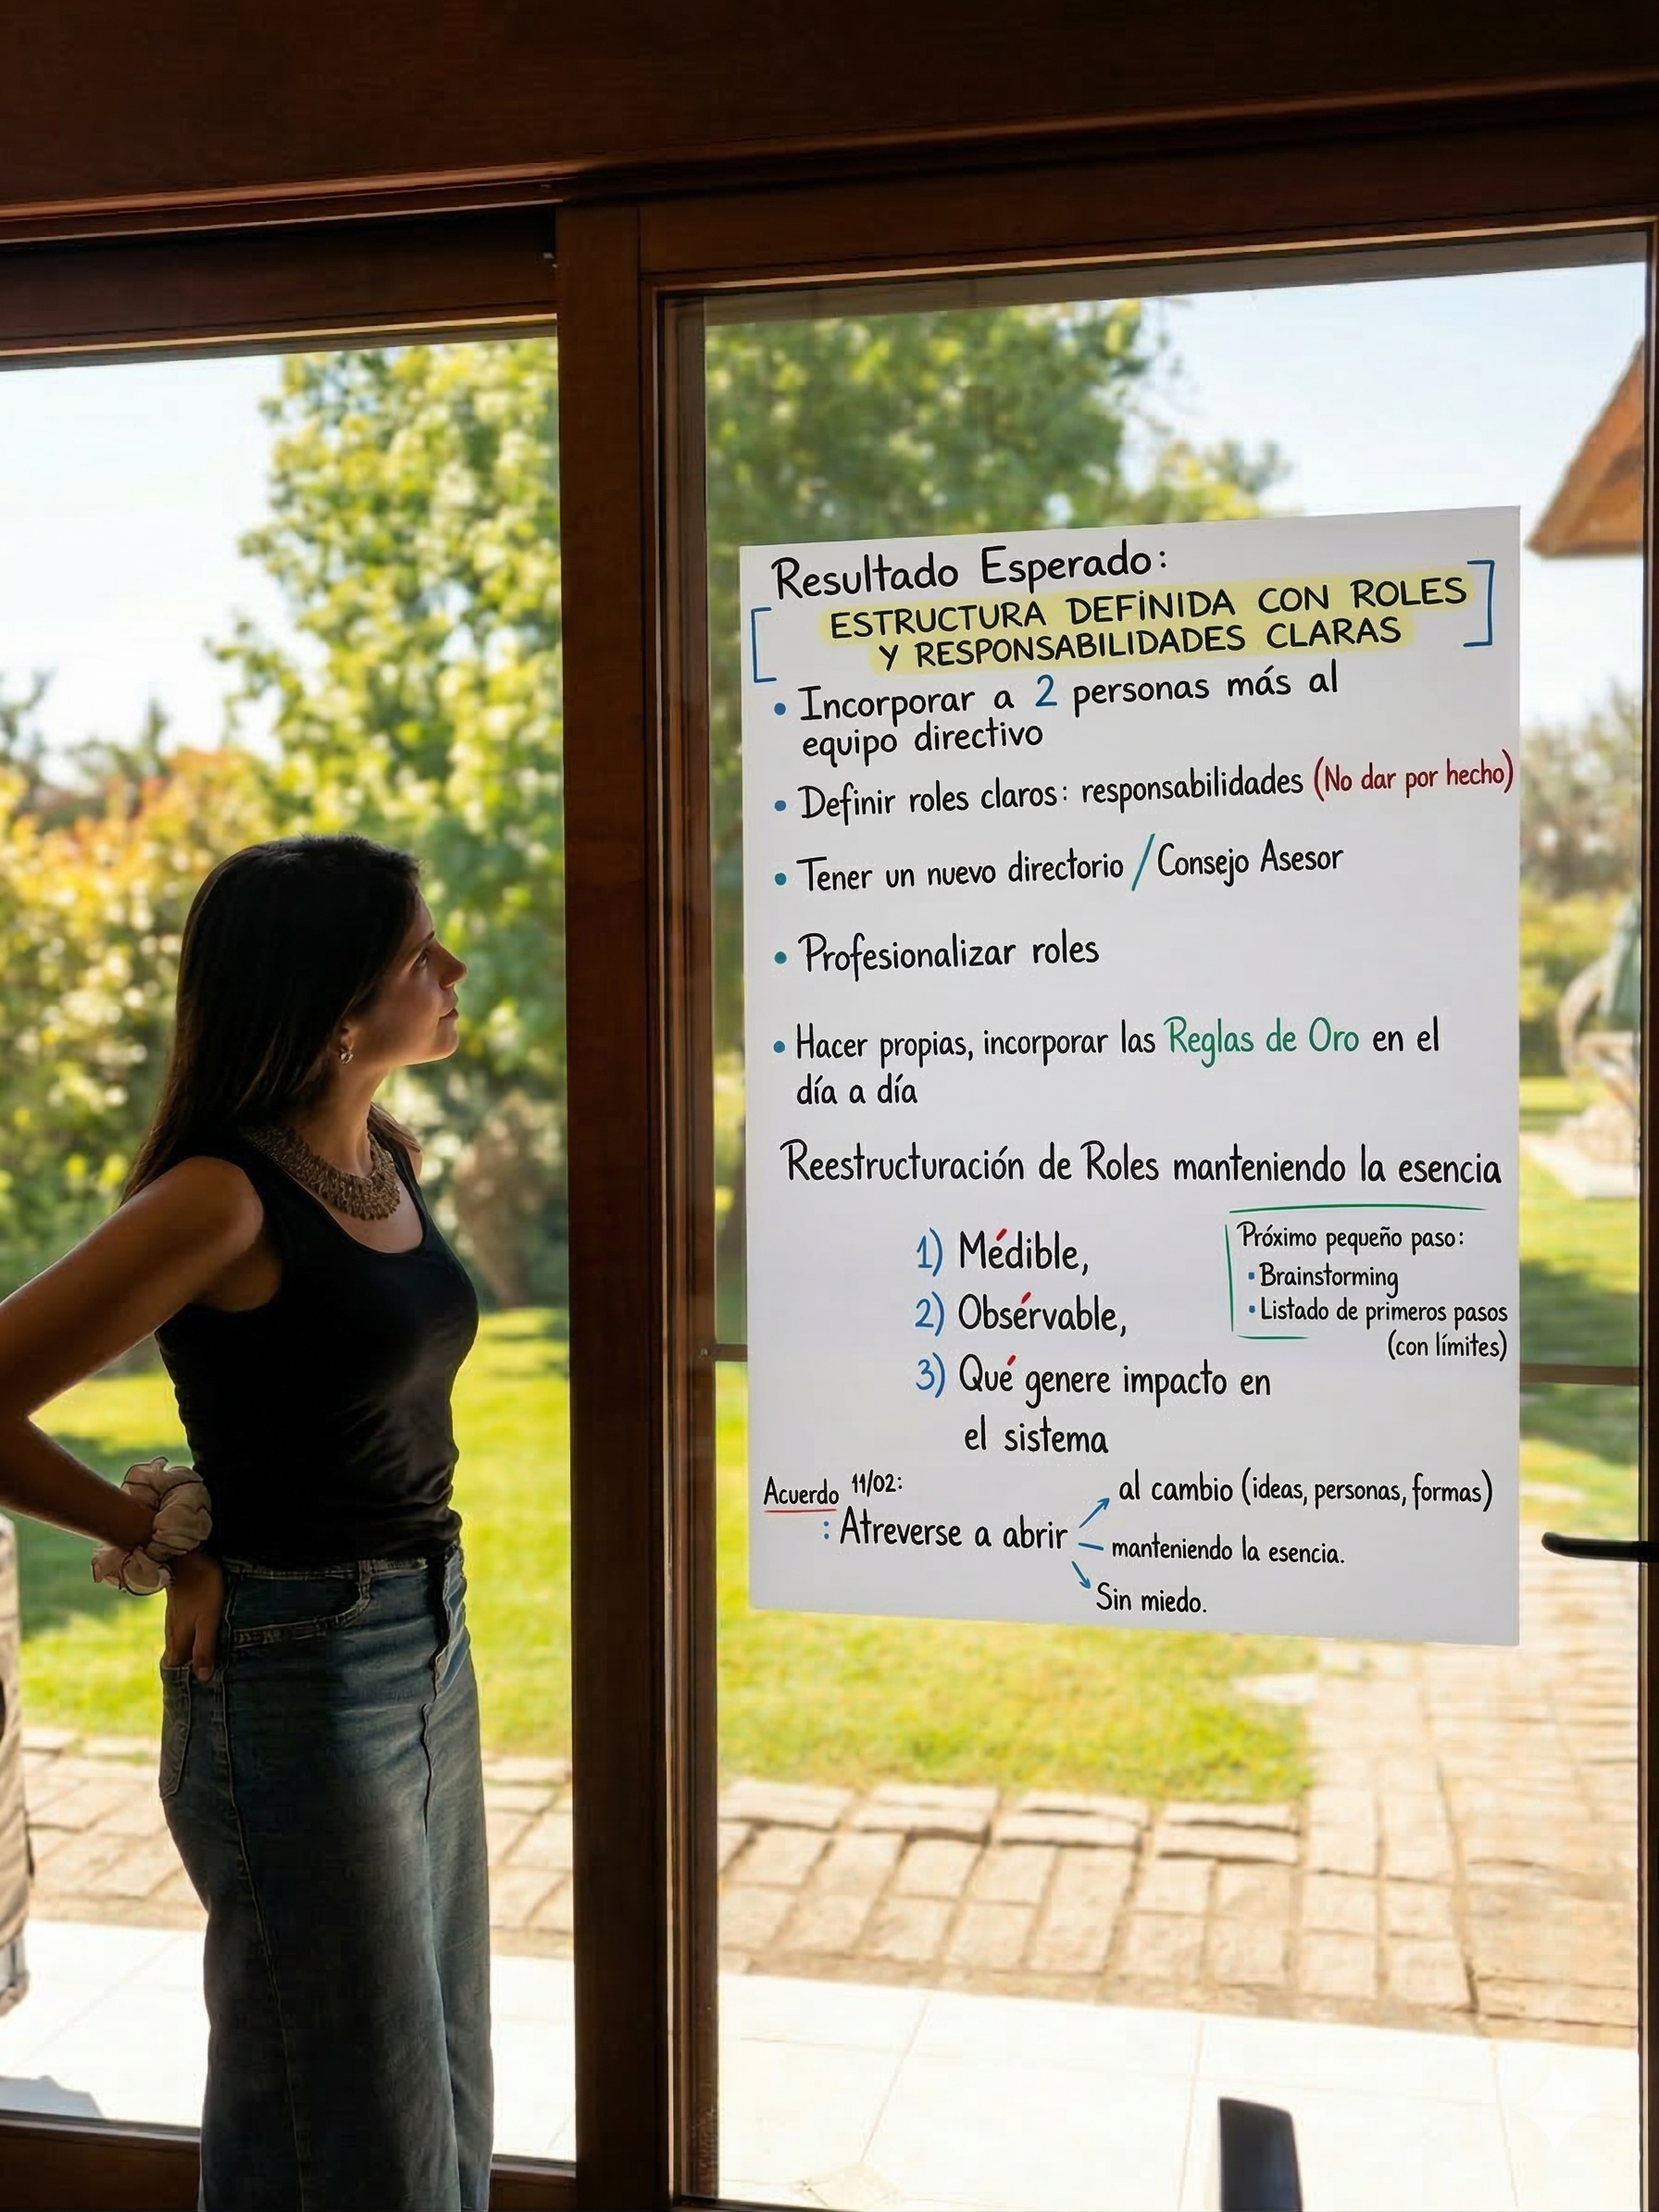 Resultado Esperado:
[ESTRUCTURA DEFINIDA CON ROLES
Y RESPONSABILIDADES CLARAS]
• Incorporar a 2 personas más al
equipo directivo
• Definir roles claros: responsabilidades (No dar por hecho)
• Tener un nuevo directorio / Consejo Asesor
• Profesionalizar roles
• Hacer propias, incorporar las Reglas de Oro en el
día a día
Reestructuración de Roles manteniendo la esencia
1) Médible,
2) Obsérvable,
3) Qué genere impacto en
el sistema
Próximo pequeño paso:
• Brainstorming
• Listado de primeros pasos
(con límites)
Acuerdo 11/02:
: Atreverse a abrir
al cambio (ideas, personas, formas)
manteniendo la esencia.
Sin miedo.